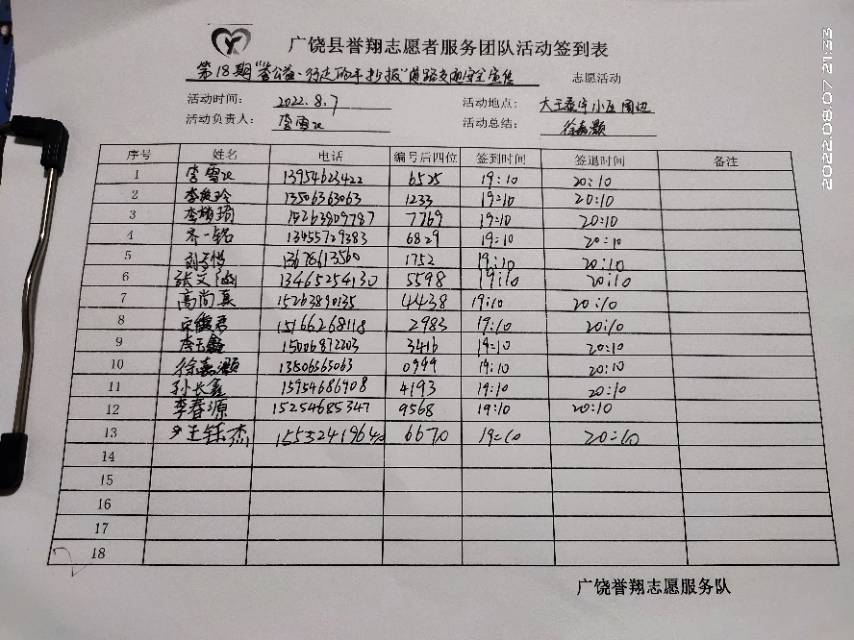 广饶县誉翔志愿者服务团队活动签到表
第18期"誉公益·行走的手抄报"道路交通安全宣传 志愿活动
活动时间： 2022.8.7 活动地点： 大王 小区周边
活动负责人： 李雪 活动总结： 徐嘉灏
序号 姓名 电话 编号后四位 签到时间 签退时间 备注
1 李雪 13954623422 6525 19:10 20:10
2 李 玲 13506363063 1233 19:10 20:10
3 李 15263809787 7769 19:10 20:10
4 齐一铭 13455729383 6829 19:10 20:10
5 刘 13678613560 1752 19:10 20:10
6 张文 13465254130 5598 19:10 20:10
7 高尚真 15263890135 4438 19:10 20:10
8 宋 君 15166268118 2983 19:10 20:10
9 李玉鑫 15006872203 3416 19:10 20:10
10 徐嘉灏 13506365063 0999 19:10 20:10
11 孙长鑫 15954686908 4193 19:10 20:10
12 李春源 15254685347 9568 19:10 20:10
13 王钰杰 15532419640 6670 19:10 20:10
14
15
16
17
18
广饶誉翔志愿服务队
2022.08.07 21:33